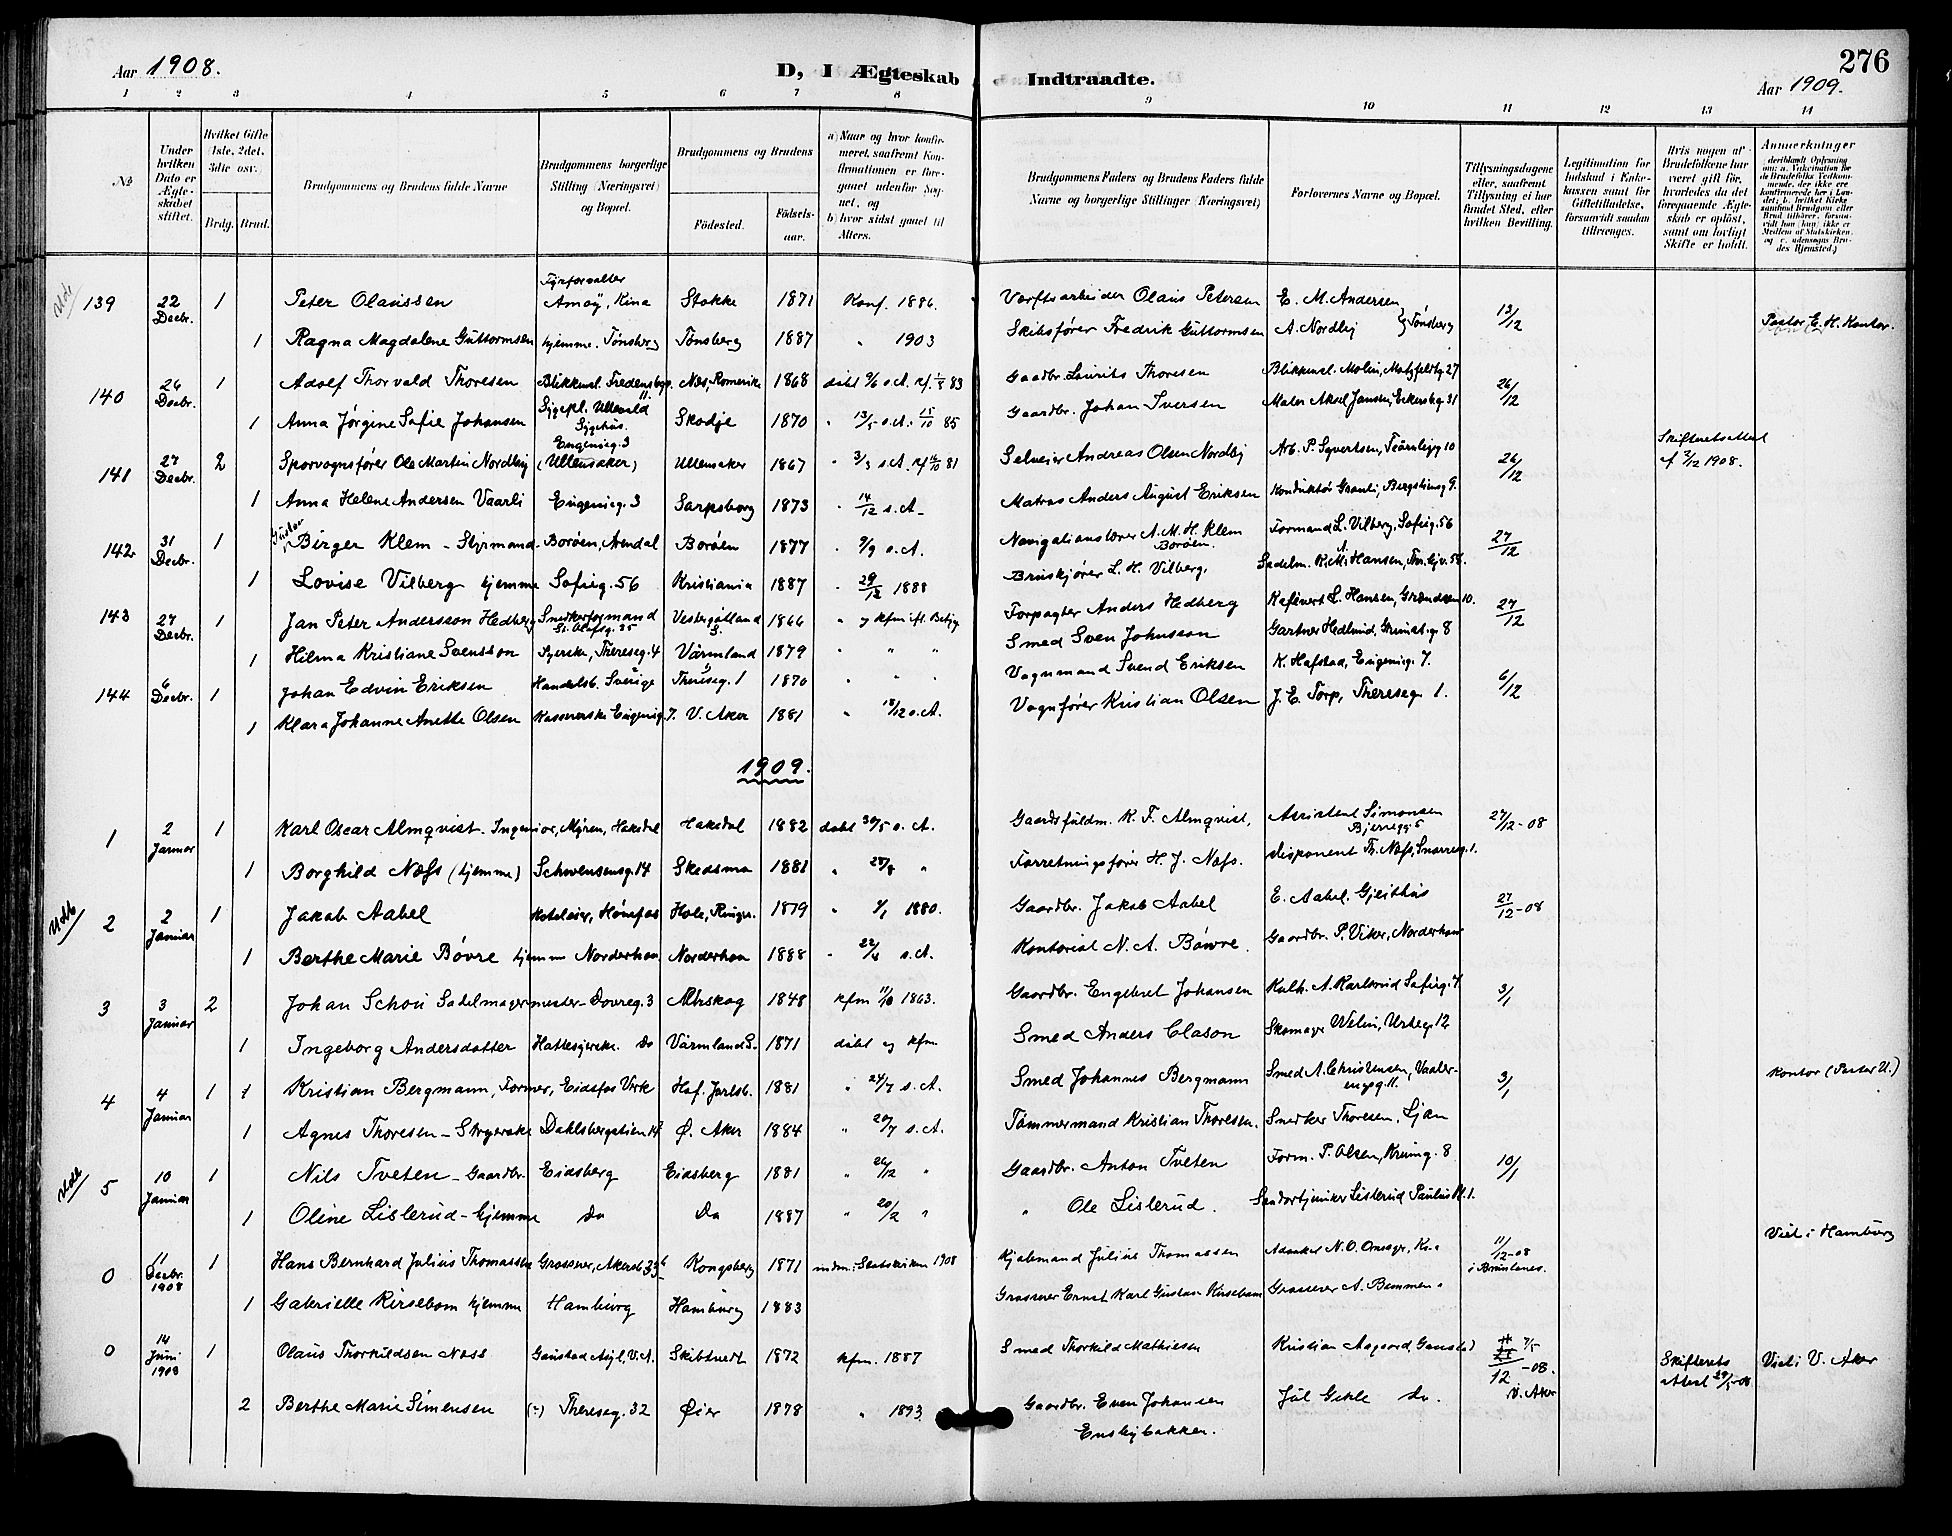 Aar 1908.
D, I Ægteskab Indtraadte.
276
Aar 1909.
1 2 3 4 5 6 7 8 9 10 11 12 13 14
No
Under hvilken Dato er Ægteskabet stiftet.
Hvilket Gifte (1ste, 2det, 3die osv.
Brdg. Brud.
Brudgommens og Brudens fulde Navne
Brudgommens borgerlige Stilling (Næringsvei) og Bopæl.
Brudgommens og Brudens
Fødested.
Fødselsaar.
a) Naar og hvor konfirmeret, saafremt Konfirmationen er foregaaet udenfor Sognet, og
b) hvor sidst gaaet til Alters.
Brudgommens Faders og Brudens Faders fulde Navne og borgerlige Stillinger (Næringsvei)
Forlovernes Navne og Bopæl.
Tillysningsdagene eller, saafremt Tillysning ei har fundet Sted, efter hvilken Bevilling.
Legitimation for Indskud i Enkekassen samt for Giftetilladelse, forsaavidt saadan tiltrænges.
Hvis nogen af Brudefolkene har været gift før, hvorledes da det foregaaende Ægteskab er opløst, samt om lovligt Skifte er holdt.
Anmærkninger
139 22 Decbr. 1 Peter Olaussen Fyrforvalter Amoy, Kina Stokke 1871 Konf. 1886. Værftsarbeider Olaus Petersen E. M. Andersen 13/12
1 Ragna Magdalene Guttormsen hjemme. Tønsberg Tønsberg 1887 " 1903 Skibsfører Fredrik Guttormsen A. Nordby } Tønsberg Pastor E. H. Kontor.
140 26 Decbr. 1 Adolf Thorvald Thoresen Blikkensl. Fredensbgv. 11 Næs, Romerike 1868 Gaardbr. Laurits Thoresen Blikkensl. Molin, Motzfeldtg 27 26/12
1 Anna Jørgine Sofie Johansen Sygepl. Ullevold Sygehus. Skodje 1870 " 13/5 s.A. 15/10 85 Gaardbr. Johan Iversen Maler Aksel Jansen, Eckersbg. 31
141 27 Decbr. 2 Sporvognsfører Ole Martin Nordby Eugenieg. 3 (Ullensaker) Ullensaker 1867 Selveier Andreas Olsen Nordby Arb. P. Syvertsen, 10 26/12 Skifteretsattest af 2/12 1908.
1 Anna Helene Andersen Vaarli Eugenieg. 3 Sarpsborg 1873 " 14/12 s.A. Matros Anders August Eriksen Konduktør Granli, Bergslieng 9.
142 31 Decbr. 1 Gustav Birger Klem - Styrmand - Borøen, Arendal Borøen 1877 " 9/9 s.A. Navigationslærer A. M. H. Klem Borøen. Formand L. Vilberg, Sofieg. 56 27/12
1 Lovise Vilberg hjemme Sofieg. 56 Kristiania 1887 " 29/12 1888 Bruskjører L. H. Vilberg. Sadelm. K. M. Hansen,
143 27 Decbr. 1 Jan Peter Andersson Hedberg Snedkerformand St. Olafsg. 35 Vestergøtland S. 1866 Forpagter Anders Hedberg Kafévert L. Hansen, Grændsen 10. 27/12
1 Hilma Kristiane Svensson Syerske, Thereseg. 4 Värmland S 1879 " " " Smed Sven Johnsson Gartner Hedlund, 8
144 6 Decbr. 1 Johan Edvin Eriksen Handelsb. Sverige Thereseg. 1 1870 " " " Vognmand Svend Eriksen K. Hafstad, Eugenieg. 7. 6/12
1 Klara Johanne Anette Olsen Kassererske Eugenieg. 7. V. Aker 1881 " 18/12 s.A. Vognfører Kristian Olsen J. E. Torp, Thereseg. 1.
1909.
1 2 Januar 1 Karl Oscar Almqvist. Ingeniør, Myren, Hakedal Hakedal 1882 døbt 30/5 s.A. Gaardsfuldm. K. F. Almqvist, Assistent Simonsen 27/12-08
1 Borghild Næss (hjemme) Schwensensg. 14 Skedsmo 1881 " Forretningsfører H. J. Næss. disponent Th. Næss, Snarreg. 1.
2 2 Januar 1 Jakob Aabel Hoteleier, Hønefos Hole, Ringer. 1879 " 1/1 1880. Gaardbr. Jakob Aabel E. Aabel. Gjeithus 27/12-08
1 Berthe Marie Bøvre hjemme Norderhov Norderhov 1888 " 22/4 s.A. Kontorist N. A. Bøvre. Gaardbr. P. Viker, Norderhov
3 3 Januar 2 Johan Schou Sadelmagermester - Dovreg. 3 1848 kfm 11/10 1863. Gaardbr. Engebret Johansen Kulh. A. Karlsrud Sofieg. 7 3/1
1 Ingeborg Andersdatter Hattesyerske. Do Värmland S. 1871 døbt og kfm. Smed Anders Clason Skomager Welin, Urteg. 12
4 4 Januar 1 1 Kristian Bergmann, Former, Eidsfos Verk Hof. Jarlsb. 1881 " 24/7 s.A. Smed Johannes Bergmann Smed A. Christensen, Vaalerengg. 11. 3/1 Kontor (Pastor U.)
1 Agnes Thoresen - Strygerske Dahlsbergstien 14 Ø. Aker 1884 " 20/7 s.A. Tømmermand Kristian Thoresen. Snedker Thoresen, Ljan
5 10 Januar 1 Nils Tveten - Gaardbr. Eidsberg Eidsberg 1881 " 26/12 " Gaardbr. Anton Tveten Form. P. Olsen, 8 10/1
1 Oline Lislerud - hjemme do Do 1887 " 20/2 " " Ole Lislerud. Lislerud Paulus Pl. 1.
0 11 Decbr. 1908 1 Hans Bernhard Julius Thomassen Grosserer, Akersb. 33 Kongsberg 1871 indm. i Statskirken 1908 Kjøbmand Julius Thomassen Advokat N. O. 11/12-08 i Brunlanes. Viet i Hamburg
1 Gabrielle Kirsebom hjemme Hamburg Hamburg 1883 Grosserer Ernst Karl Gustav Kirsebom Grosserer A. Bommen
0 14 Juni 1908 1 Olaus Thorkildsen Næss Gaustad Asyl, V.A. Skibtvedt 1872 kfm. 1887 Smed Thorkild Mathiesen Kristian Aagaard, Gaustad 7/5 12 -08. V. Aker Skifterets attest 29/5-08 Viet i V. Aker
2 Berthe Marie Simensen (÷) Thereseg. 32 Øier 1878 " 1893. Gaardbr. Even Johansen Ensbybakken. Jul Gekle do.